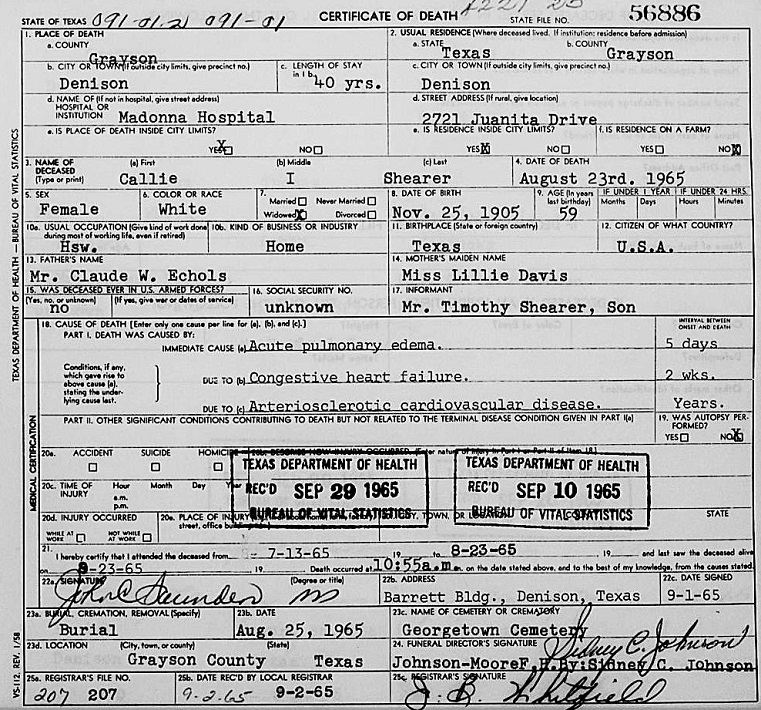 STATE OF TEXAS 091-01-21 091-01 CERTIFICATE OF DEATH STATE FILE NO. 56886
1. PLACE OF DEATH
a. COUNTY
Grayson
2. USUAL RESIDENCE (Where deceased lived. If institution: residence before admission)
a. STATE Texas b. COUNTY Grayson
b. CITY OR TOWN (If outside city limits, give precinct no.)
Denison
c. LENGTH OF STAY in 1 b.
40 yrs.
c. CITY OR TOWN (If outside city limits, give precinct no.)
Denison
d. NAME OF (If not in hospital, give street address)
HOSPITAL OR
INSTITUTION Madonna Hospital
d. STREET ADDRESS (If rural, give location)
2721 Juanita Drive
e. IS PLACE OF DEATH INSIDE CITY LIMITS?
YES X NO
e. IS RESIDENCE INSIDE CITY LIMITS?
YES X NO
f. IS RESIDENCE ON A FARM?
YES NO X
3. NAME OF DECEASED (Type or print)
(a) First (b) Middle (c) Last
Callie I Shearer
4. DATE OF DEATH
August 23rd. 1965
5. SEX
Female
6. COLOR OR RACE
White
7.
Married Never Married
Widowed X Divorced
8. DATE OF BIRTH
Nov. 25, 1905
9. AGE (In years last birthday)
59
IF UNDER 1 YEAR IF UNDER 24 HRS.
Months Days Hours Minutes
10a. USUAL OCCUPATION (Give kind of work done during most of working life, even if retired)
Hsw.
10b. KIND OF BUSINESS OR INDUSTRY
Home
11. BIRTHPLACE (State or foreign country)
Texas
12. CITIZEN OF WHAT COUNTRY?
U.S.A.
13. FATHER'S NAME
Mr. Claude W. Echols
14. MOTHER'S MAIDEN NAME
Miss Lillie Davis
15. WAS DECEASED EVER IN U.S. ARMED FORCES?
(Yes, no, or unknown) (If yes, give war or dates of service)
no
16. SOCIAL SECURITY NO.
unknown
17. INFORMANT
Mr. Timothy Shearer, Son
18. CAUSE OF DEATH [Enter only one cause per line for (a), (b), and (c).]
PART I. DEATH WAS CAUSED BY:
INTERVAL BETWEEN ONSET AND DEATH
IMMEDIATE CAUSE (a) Acute pulmonary edema. 5 days
Conditions, if any, which gave rise to above cause (a), stating the underlying cause last.
DUE TO (b) Congestive heart failure. 2 wks.
DUE TO (c) Arteriosclerotic cardiovascular disease. Years.
PART II. OTHER SIGNIFICANT CONDITIONS CONTRIBUTING TO DEATH BUT NOT RELATED TO THE TERMINAL DISEASE CONDITION GIVEN IN PART I(a)
19. WAS AUTOPSY PERFORMED?
YES NO X
20a. ACCIDENT SUICIDE HOMICIDE
20b. DESCRIBE HOW INJURY OCCURRED. (Enter nature of injury in Part I or Part II of item 18.)
20c. TIME OF INJURY Hour Month Day Year
a.m.
p.m.
TEXAS DEPARTMENT OF HEALTH
REC'D SEP 29 1965
BUREAU OF VITAL STATISTICS
TEXAS DEPARTMENT OF HEALTH
REC'D SEP 10 1965
BUREAU OF VITAL STATISTICS
20d. INJURY OCCURRED
WHILE AT WORK NOT WHILE AT WORK
20e. PLACE OF INJURY
street, office
CITY, TOWN, OR
STATE
21.
I hereby certify that I attended the deceased from 7-13-65 19 to 8-23-65, 19 and last saw the deceased alive
on 8-23-65 19 Death occurred at 10:55a.m. on the date stated above, and to the best of my knowledge, from the causes stated.
22a. SIGNATURE (Degree or title)
John C Saunders MD
22b. ADDRESS
Barrett Bldg., Denison, Texas
22c. DATE SIGNED
9-1-65
23a. BURIAL, CREMATION, REMOVAL (Specify)
Burial
23b. DATE
Aug. 25, 1965
23c. NAME OF CEMETERY OR CREMATORY
Georgetown Cemetery
23d. LOCATION (City, town, or county) (State)
Grayson County Texas
24. FUNERAL DIRECTOR'S SIGNATURE
Sidney C. Johnson
Johnson-Moore F.H. By: Sidney C. Johnson
25a. REGISTRAR'S FILE NO.
207 207
25b. DATE REC'D BY LOCAL REGISTRAR
9-2-65 9-2-65
25c. REGISTRAR'S SIGNATURE
J. B. Whitfield
TEXAS DEPARTMENT OF HEALTH — BUREAU OF VITAL STATISTICS
MEDICAL CERTIFICATION
VS-112, REV. 1/58